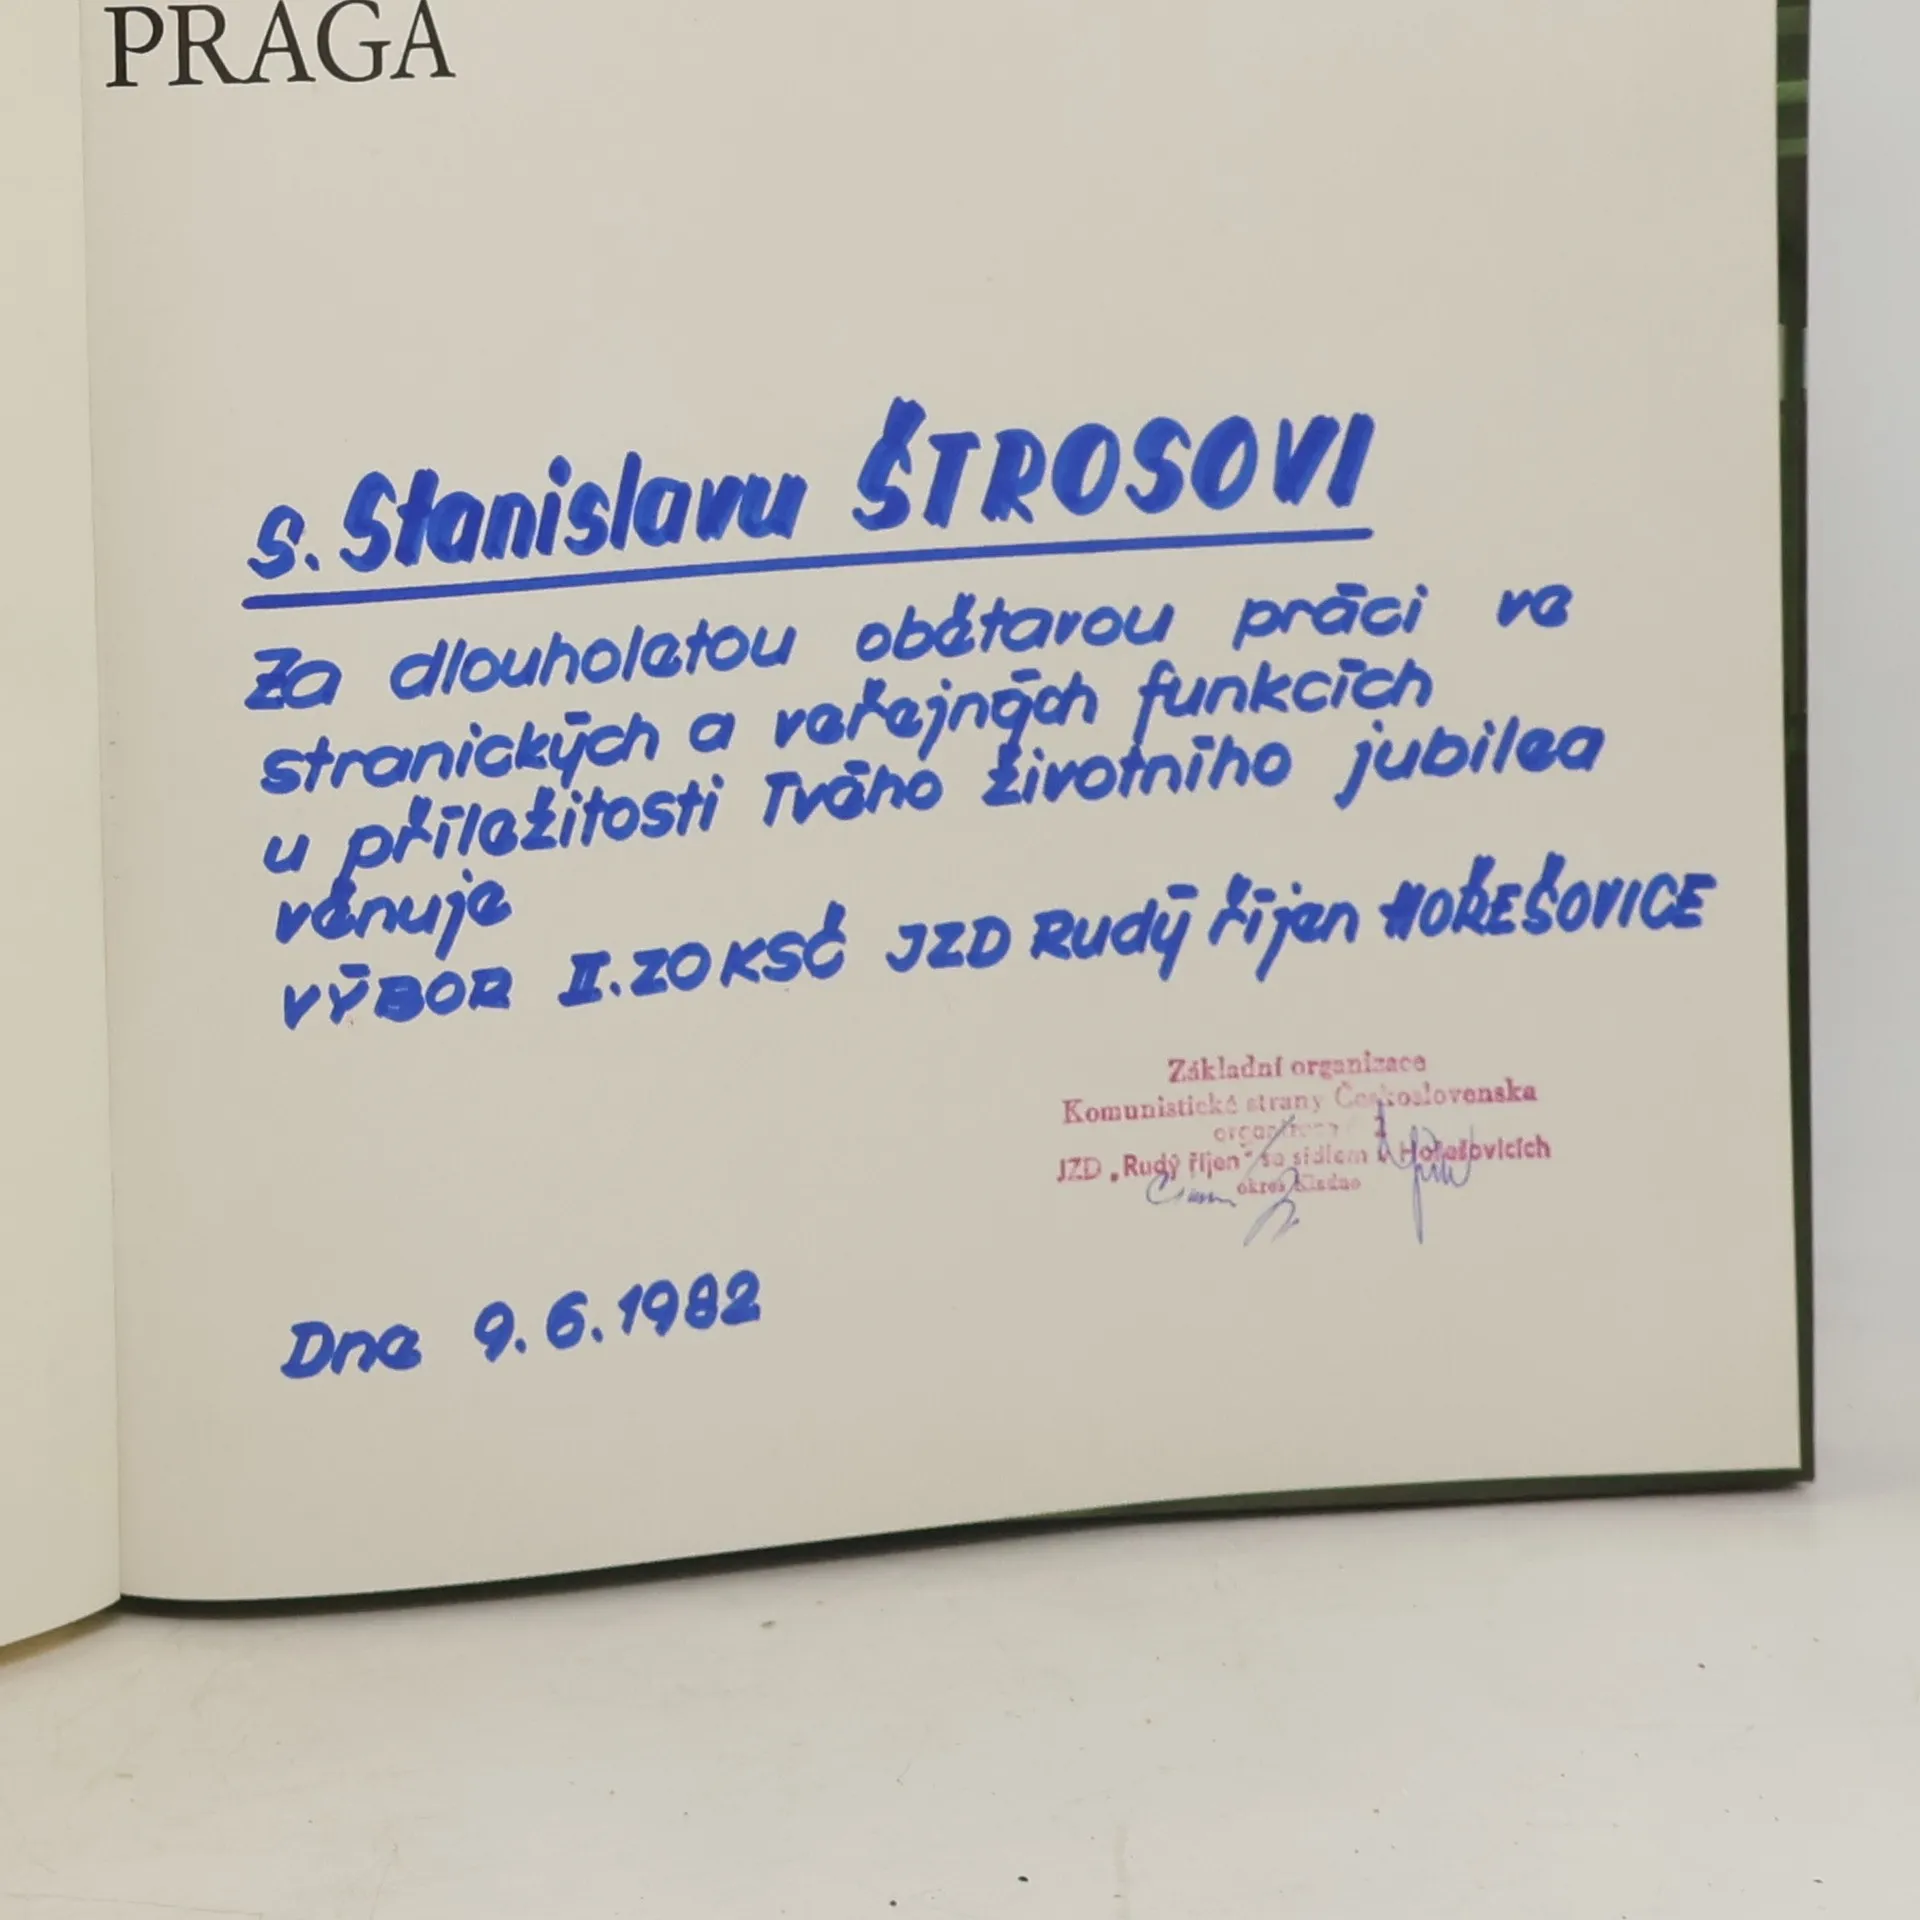 PRAGA
s. Stanislavu ŠTROSOVI
Za dlouholetou obětavou práci ve
stranických a veřejných funkcích
u příležitosti Tvého životního jubilea
věnuje
VÝBOR II. ZO KSČ JZD Rudý říjen HOŘEŠOVICE
Základní organizace
Komunistické strany Československa
JZD „Rudý říjen" se sídlem v Hořešovicích
okres Kladno
Dne 9.6.1982